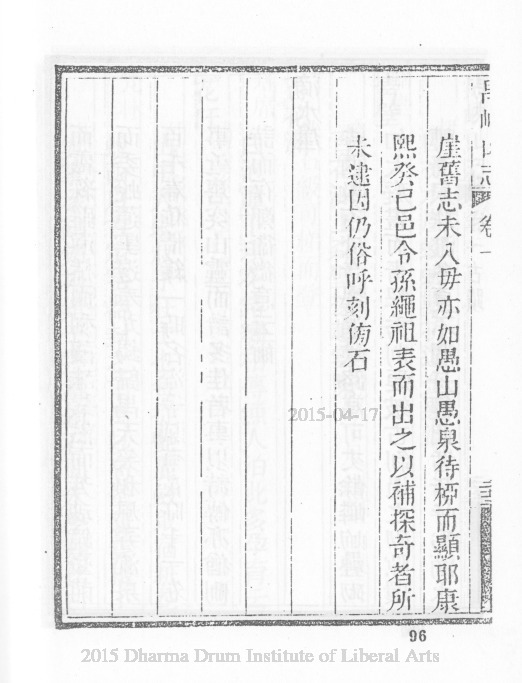 崖舊志未入毋亦如愚山愚泉待柳而顯耶康
熙癸巳邑令孫繩祖表而出之以補探奇者所
未逮因仍俗呼刻於石
卷一
2015-04-17
96
2015 Dharma Drum Institute of Liberal Arts